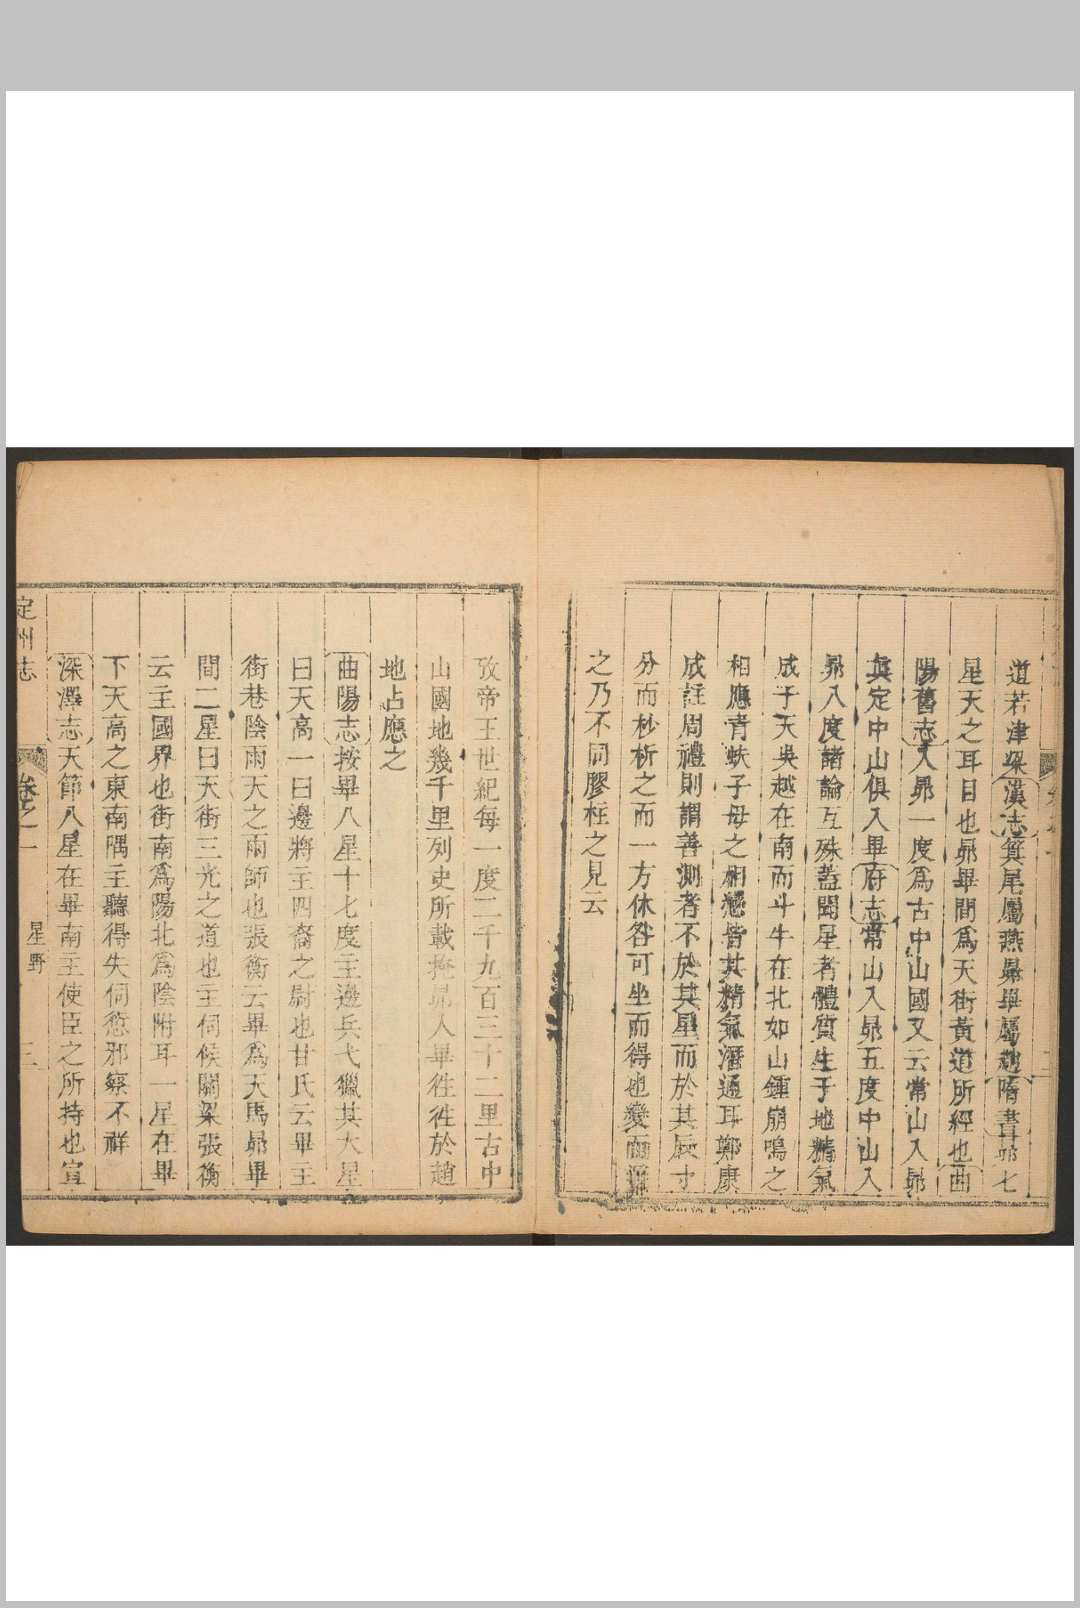 道若津梁漢志箕尾屬燕昴畢屬趙隋書昴七
星天之耳目也昴畢間爲天街黃道所經也曲
陽舊志入昴一度爲古中山國又云常山入昴
真定中山俱入畢府志常山入昴五度中山入
昴八度諸論互殊蓋聞星者體質生于地精氣
成于天吳越在南而斗牛在北如山鍾崩鳴之
相應青蚨子母之相戀皆其精氣潛通耳鄭康
成註周禮則謂善測者不於其星而於其辰寸
分而杪析之而一方休咎可坐而得也變而通
之乃不同膠柱之見云
攷帝王世紀每一度二千九百三十二里古中
山國地幾千里列史所載掩昴入畢徃徃於趙
地占應之
曲陽志按畢八星十七度主邊兵弋獵其大星
曰天高一曰邊將主四裔之尉也甘氏云畢主
街巷陰雨天之雨師也張衡云畢爲天馬昴畢
間二星曰天街三光之道也主伺候關梁張衡
云主國界也街南爲陽北爲陰附耳一星在畢
下天高之東南隅主聽得失伺愆邪察不祥
深澤志天節八星在畢南主使臣之所持也宣
定州志 卷之一 星野 三